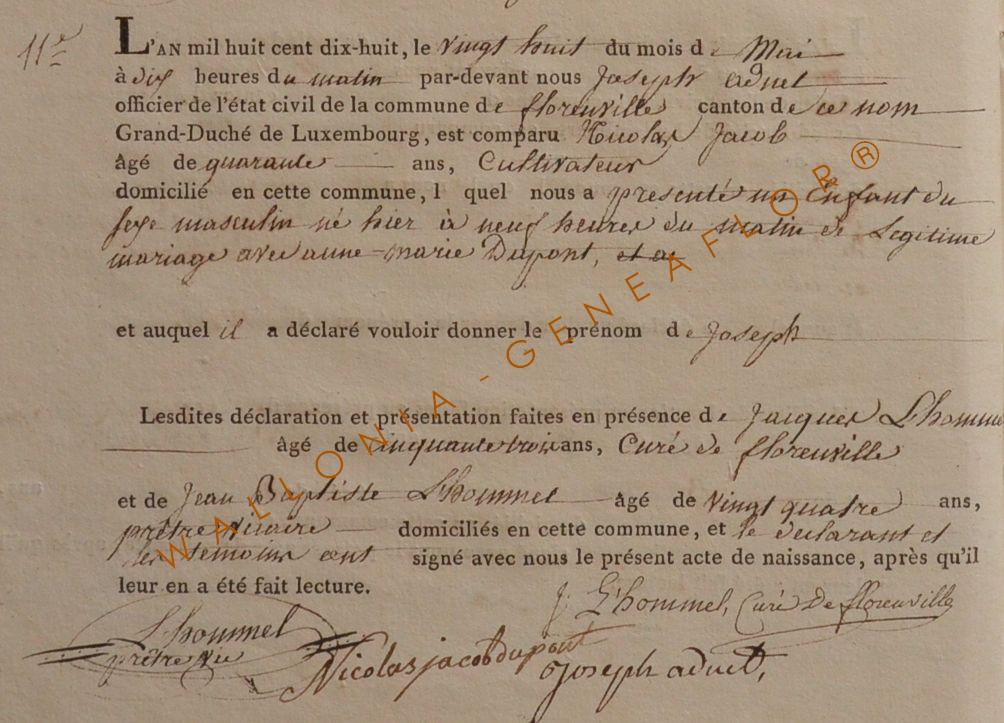 11e
L'AN mil huit cent dix-huit, le vingt huit du mois de Mai
à dix heures du matin par-devant nous Joseph aduet
officier de l'état civil de la commune de florenville canton de ce nom
Grand-Duché de Luxembourg, est comparu Nicolas Jacob
âgé de quarante ans, Cultivateur
domicilié en cette commune, l quel nous a presenté un Enfant du
sexe masculin né hier à neuf heures du matin de Legitime
mariage avec anne-marie Dupont, et a
et auquel il a déclaré vouloir donner le prénom de Joseph
Lesdites déclaration et présentation faites en présence de Jacques L'homme
âgé de cinquante trois ans, Curé de florenville
et de Jean Baptiste L'hommel âgé de vingt quatre ans,
prêtre vicaire domiciliés en cette commune, et le declarant et
les temoins ont signé avec nous le présent acte de naissance, après qu'il
leur en a été fait lecture.
J. L'hommel, Curé De florenville
L'hommel
prêtre vic
Nicolas jacob dupont
Joseph aduet,
WALLONIA-GENEAFLOR®